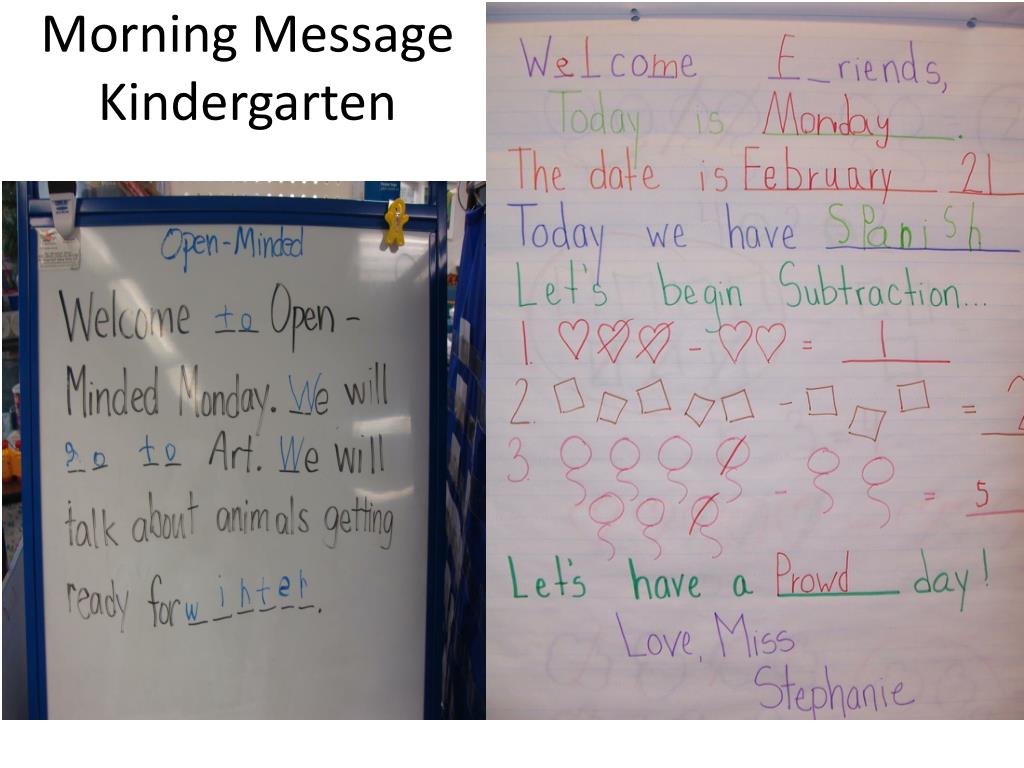 Morning Message
Kindergarten
Open-Minded
Welcome to Open-
Minded Monday. We will
go to Art. We will
talk about animals getting
ready for winter.
Welcome F_riends,
Today is Monday.
The date is February 21
Today we have Spanish
Let's begin Subtraction...
1. - = 1
2. - = 2
3. - = 5
Let's have a Prowd day!
Love, Miss
Stephanie